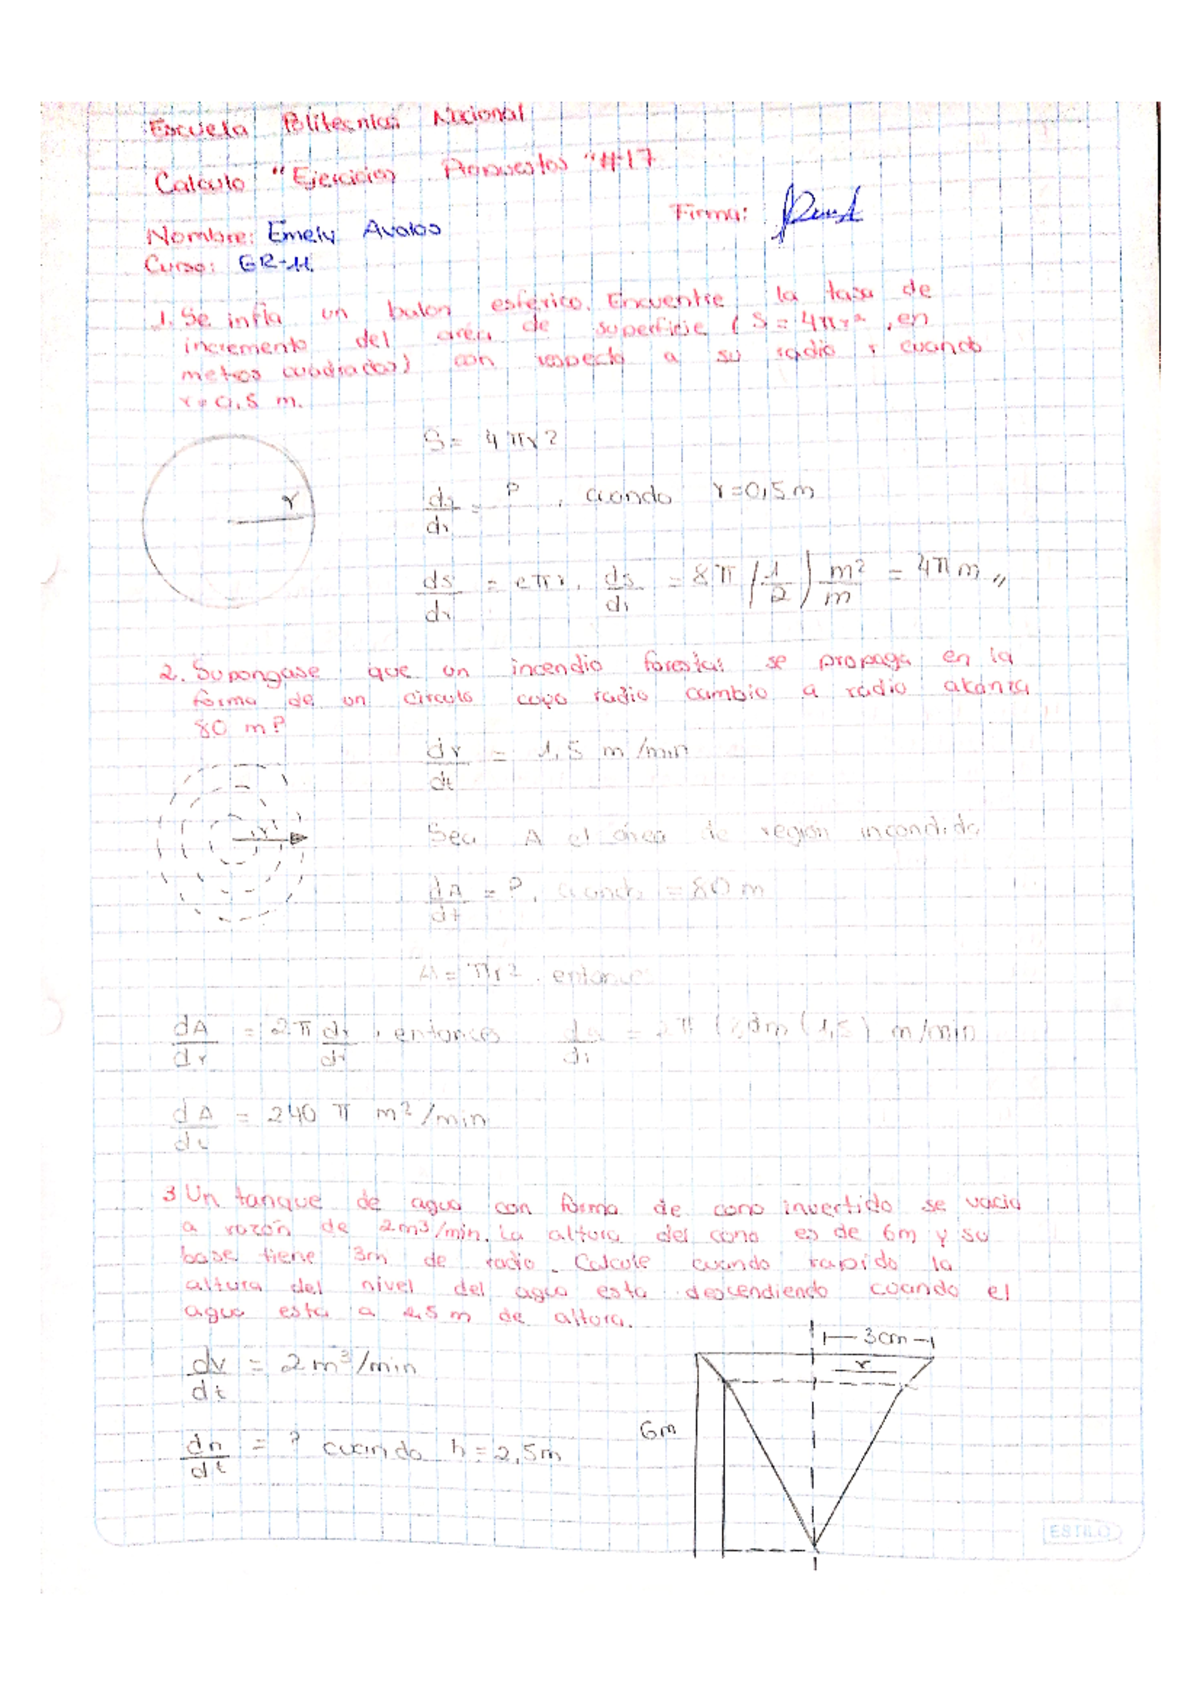 Escuela Politecnica Nacional
Calculo "Ejercicios Propuestos "#17
Firma:
Nombre: Emely Avalos
Curso: GR-11
1. Se infla un balon esférico. Encuentre la tasa de
incremento del area de superficie (S = 4πr², en
metros cuadrados) con respecto a su radio r cuando
r = 0,5 m.
S = 4πr²
r
ds/dr = ? , cuando r=0,5m
ds/dr = 8πr. ds/dr = 8π (1/2) m²/m = 4π m //
2. Supongase que un incendio forestal se propaga en la
forma de un circulo cuyo radio cambio a radio alcanza
80 m?
dr/dt = 1,5 m/min
r
Sea A el área de region incendida
dA/dt = ?, cuando = 80 m
A = πr². entonces
dA/dr = 2π dr/dt, entonces = 2π (80m (1,5) m/min
dA/dt = 240 π m²/min
3 Un tanque de agua con forma de cono invertido se vacia
a razón de 2m³/min. La altura del cono es de 6m y su
base tiene 3m de radio. Calcule cuando rapido la
altura del nivel del agua esta descendiendo cuando el
agua esta a 2,5 m de altura.
3cm
dv/dt = 2 m³/min
r
6m
dh/dt = ? cuando h = 2,5m
ESTILO